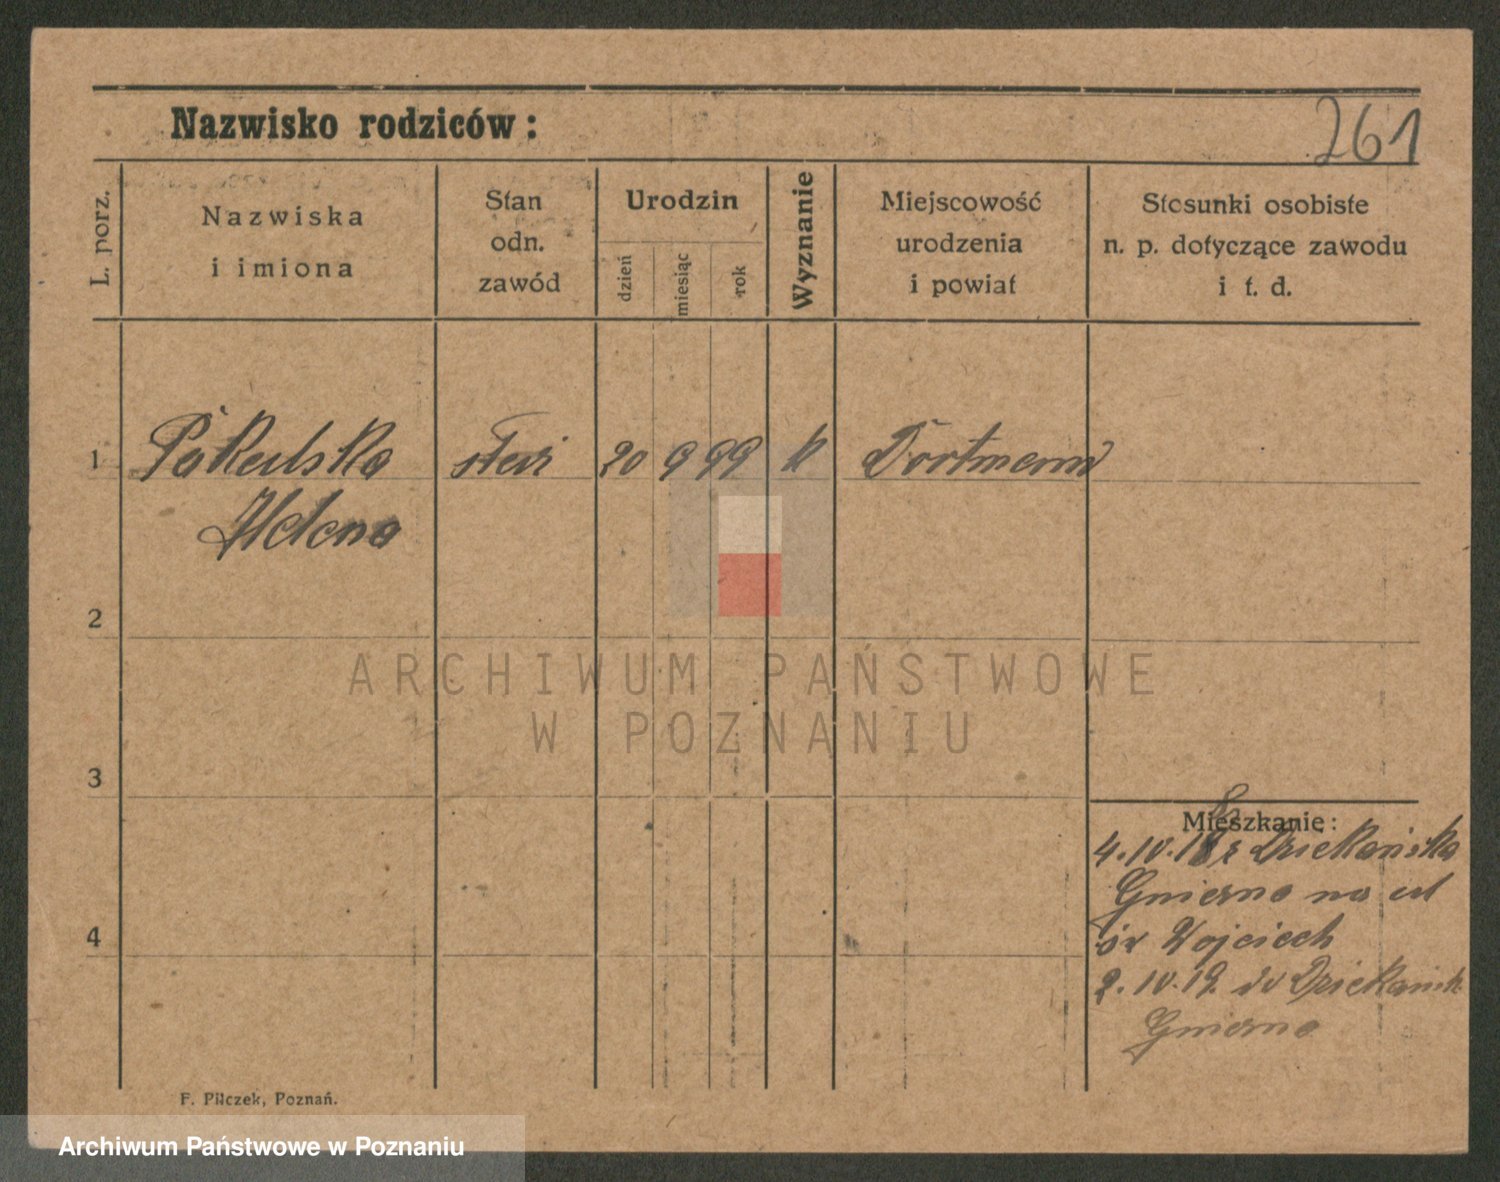 Nazwisko rodziców:
261
L. porz.
Nazwiska
i imiona
Stan
odn.
zawód
Urodzin
dzień
miesiąc
rok
Wyznanie
Miejscowość
urodzenia
i powiat
Stosunki osobiste
n. p. dotyczące zawodu
i t. d.
1 20 9 99 k
Helena
2
ARCHIWUM PAŃSTWOWE
W POZNANIU
3
Mieszkanie:
4. IV. Dziekańska
Gniezno na ul
św Wojciech
2. IV. 19. do
4
Gniezno
F. Pilczek, Poznań.
Archiwum Państwowe w Poznaniu